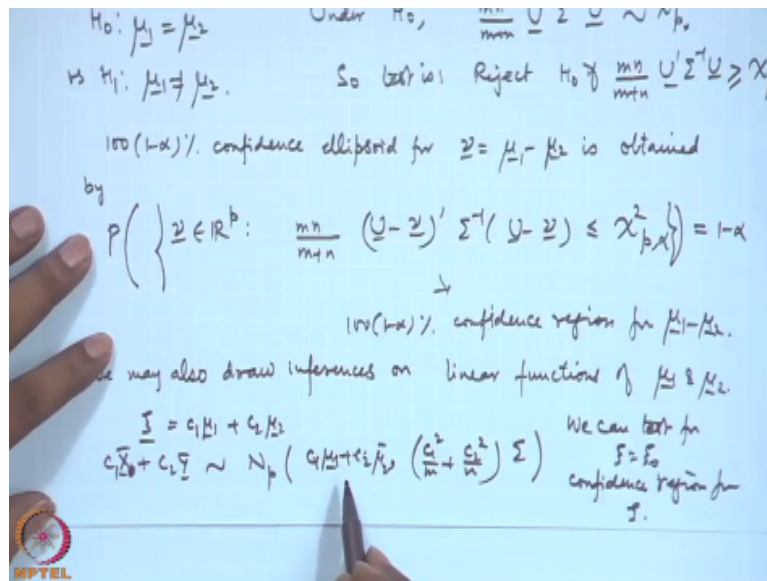 H₀: μ₁ = μ₂ Under H₀, mn/m+n U' Σ⁻¹ U ~
vs H₁: μ₁ ≠ μ₂. So test is: Reject H₀ if mn/m+n U' Σ⁻¹ U ≥ χ
100(1-α)% confidence ellipsoid for ν = μ₁ - μ₂ is obtained
by
P( { ν ∈ ℝᵖ: mn/m+n (U - ν)' Σ⁻¹ (U - ν) ≤ χ²ₚ,α } ) = 1-α
↓
100(1-α)% confidence region for μ₁-μ₂.
may also draw inferences on linear functions of μ₁ & μ₂.
ξ = c₁μ₁ + c₂μ₂ We can test for
c₁X̄ + c₂Ȳ ~ Nₚ( c₁μ₁+c₂μ₂, (c₁²/m + c₂²/n) Σ ) ξ = ξ₀
confidence region for
ξ.
NPTEL